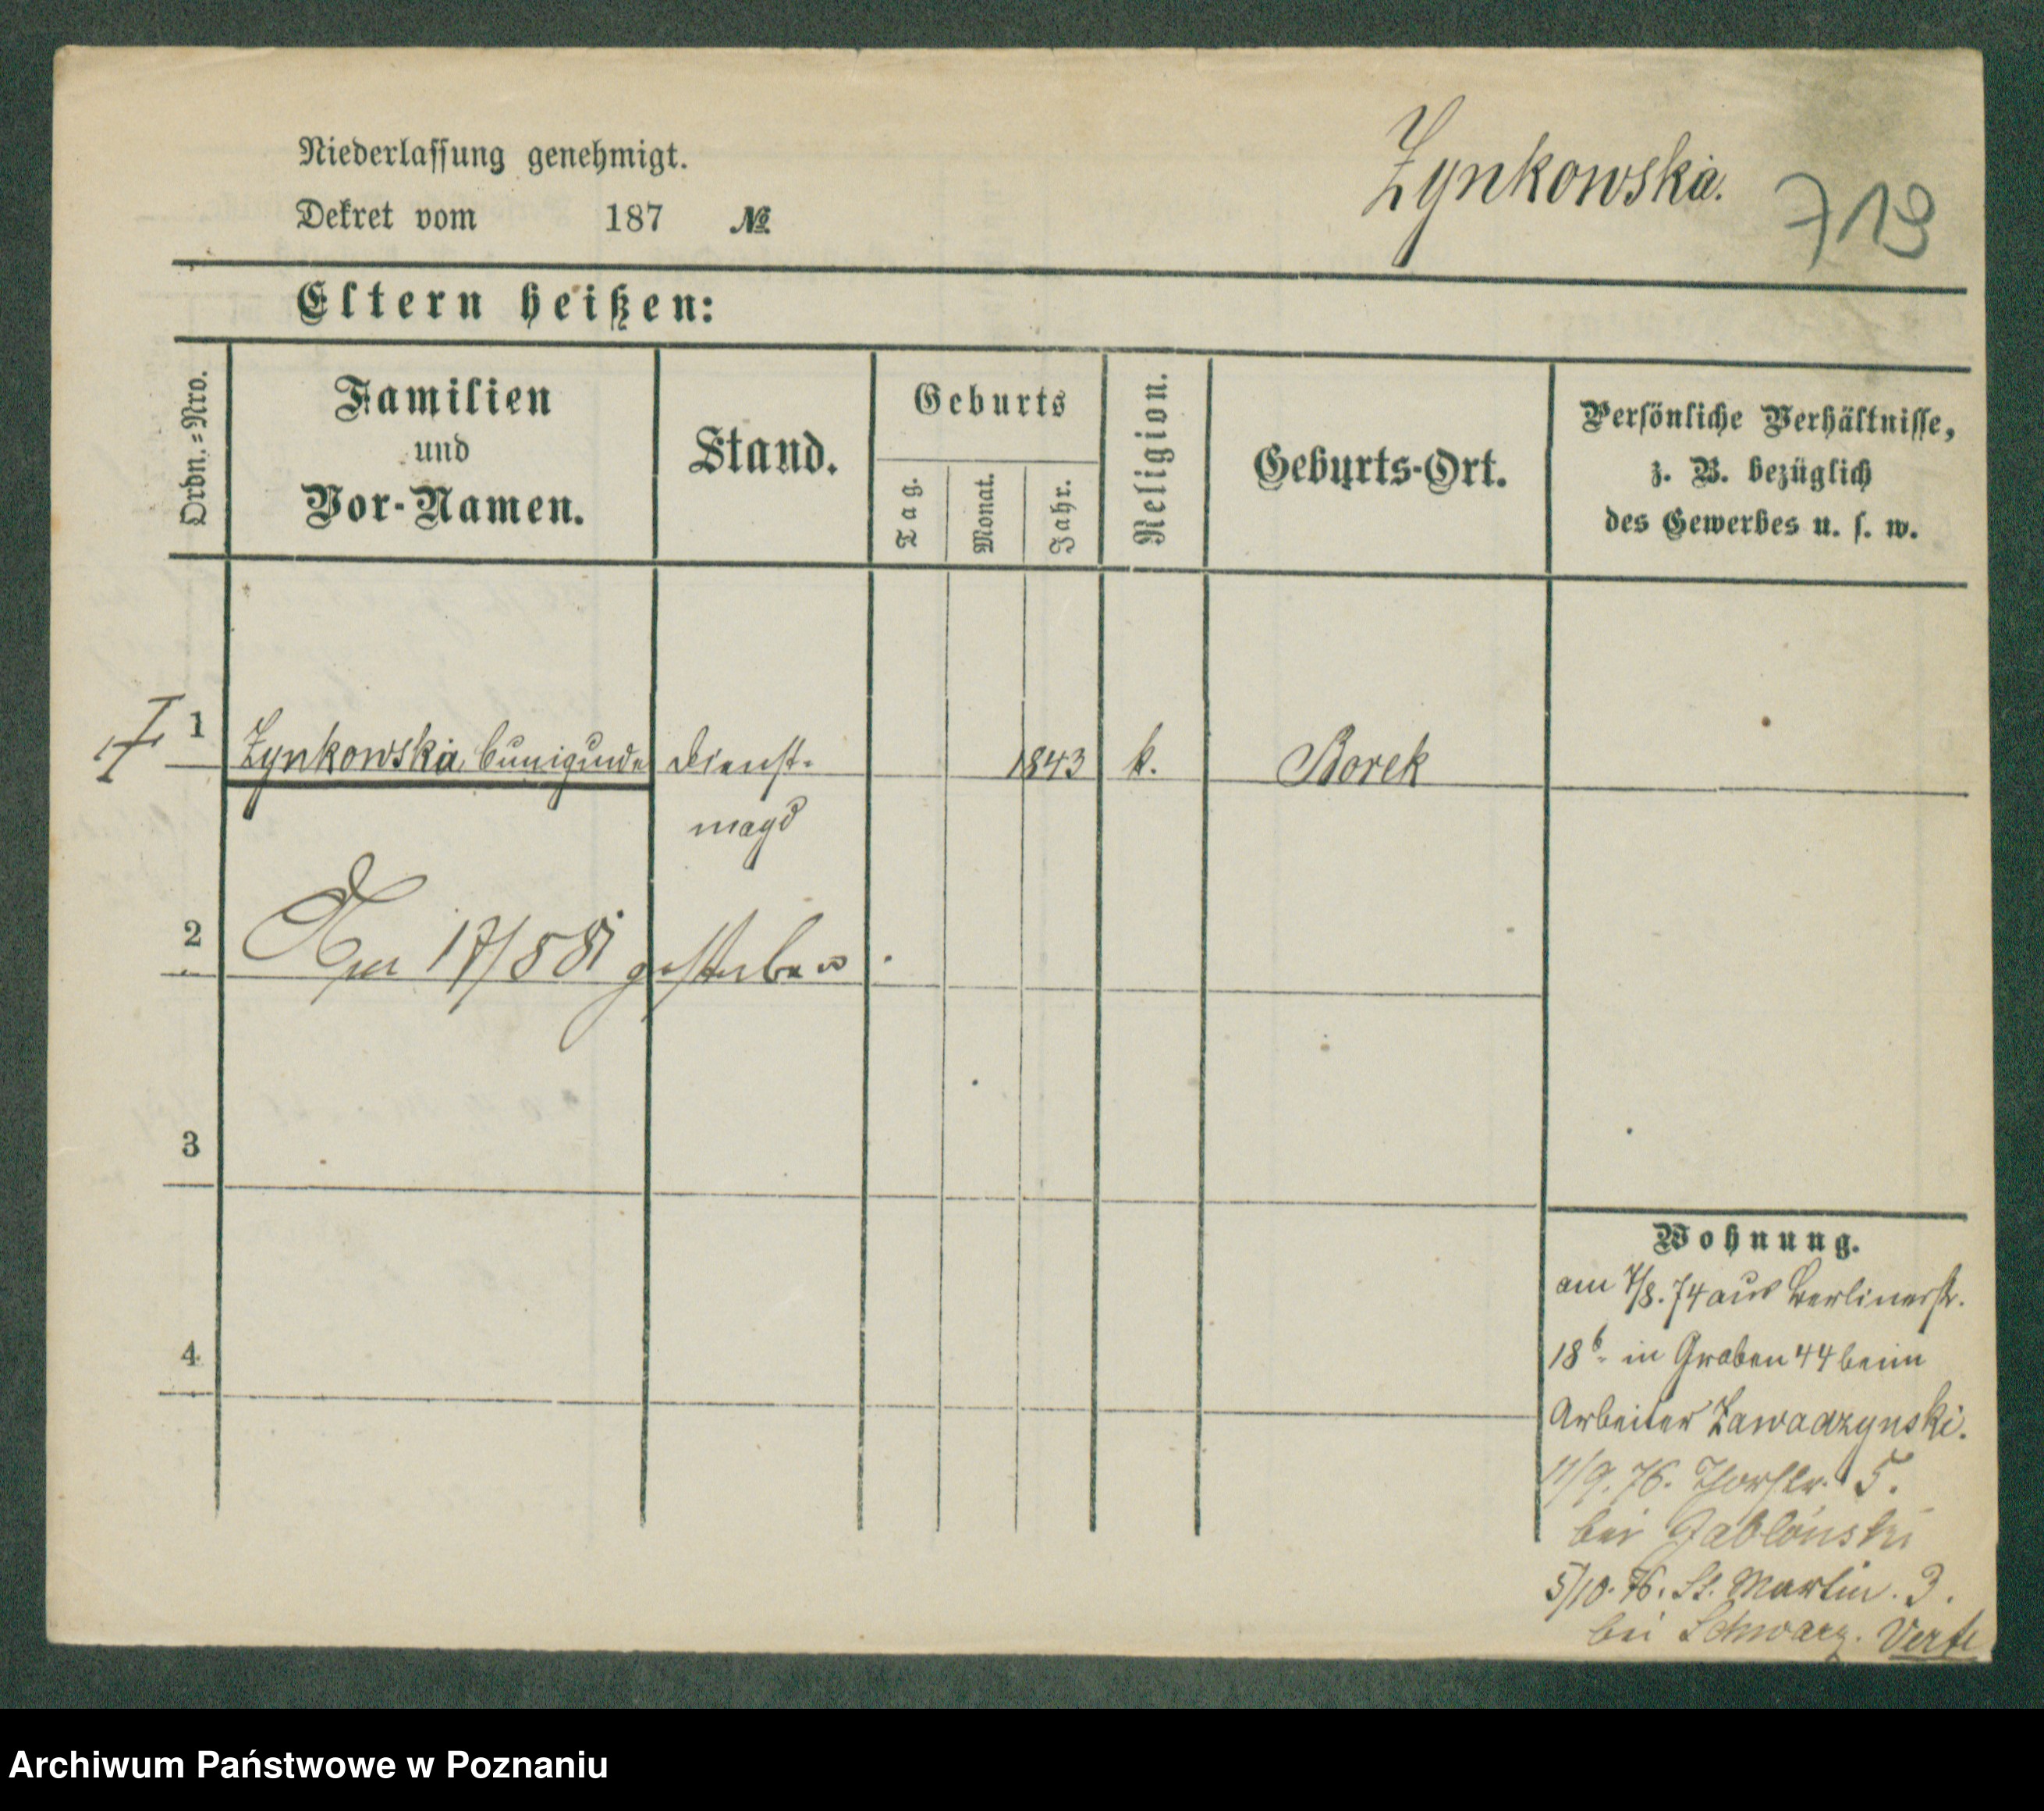 Niederlassung genehmigt.
Dekret vom 187 №
Zynkowska.
719
Eltern heißen:
Ordn.=Nro.
Familien
und
Vor-Namen.
Stand.
Geburts
Tag.
Monat.
Jahr.
Religion.
Geburts-Ort.
Persönliche Verhältnisse,
z. B. bezüglich
des Gewerbes u. s. w.
1 Zynkowska, Cunigunde Dienst- 1843 k. Borek
magd
2 17/5 81 gestorben.
3
4
Wohnung.
am 7/8. 74 aus Berlinerstr.
18b. in Graben 44 beim
Arbeiter Zawadzynski.
11/9. 76. Thorstr. 5.
bei Jabloński
5/10. 76. St. Martin. 3.
bei Schwarz. Verte
Archiwum Państwowe w Poznaniu